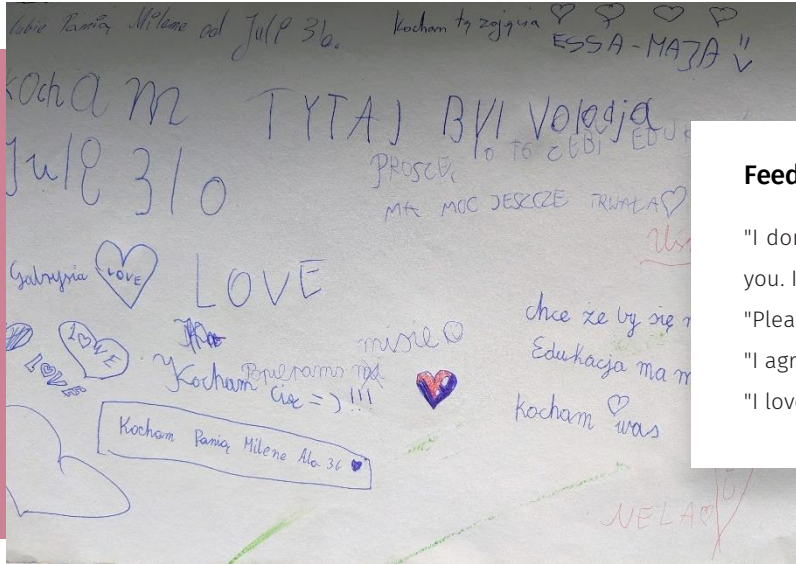 lubię Panią Milenę od Julp 3b.
Kocham tą zajęcia
ESSA-MAJA !!
kOchAM
Julp 310
TYTAJ BYl Volodja
PROSCĘ, O TO CEBI EDU
MA MOC JESZCZE TRWAŁA
Gabrysia LOVE
LOVE
LOWE
LOVE
misie
Kocham
Cię =) !!!
chce że by się
Edukacja ma m
kocham was
Kocham Panią Milene Ala 3b
NELA
Feed
"I don
you. I
"Plea
"I agr
"I love